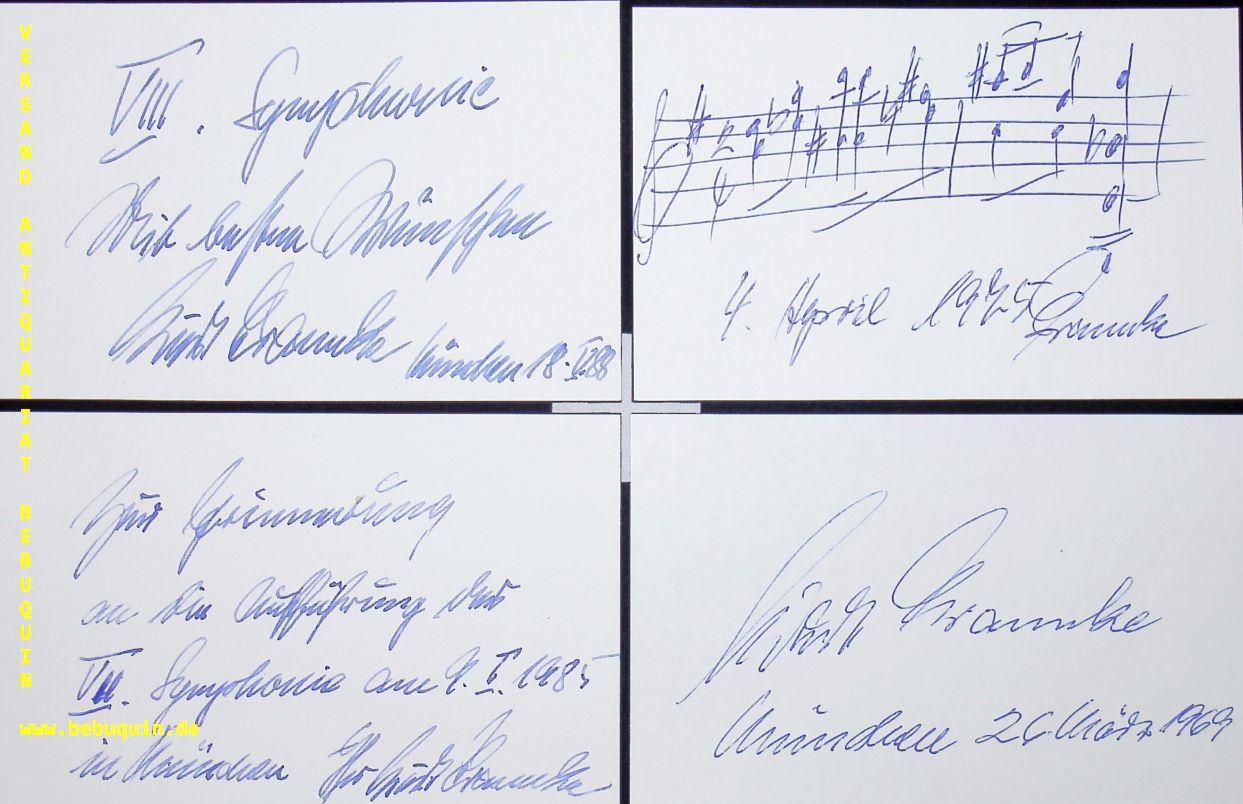 VERSAND ANTIQUARIAT BEBUQUIN
www.bebuquin.de
VIII. Symphonie
Mit besten Wünschen
München 18. V. 88
4. April 1975
Zur Erinnerung
an die Aufführung der
VII. Symphonie am 9. V. 1985
in München Ihr
München 26 März 1969